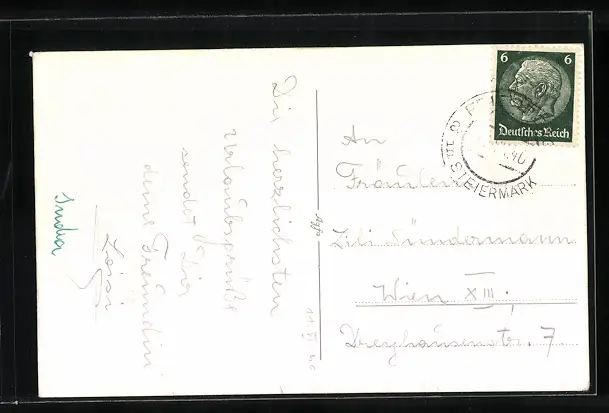 Die herzlichsten
Urlaubsgrüße
sendet Dir
deine Freundin
Loisi
India
11. VI. 40
6 6
Deutsches Reich
STEIERMARK
An
Fräulein
Lili Sündermann
Wien XIII;
7